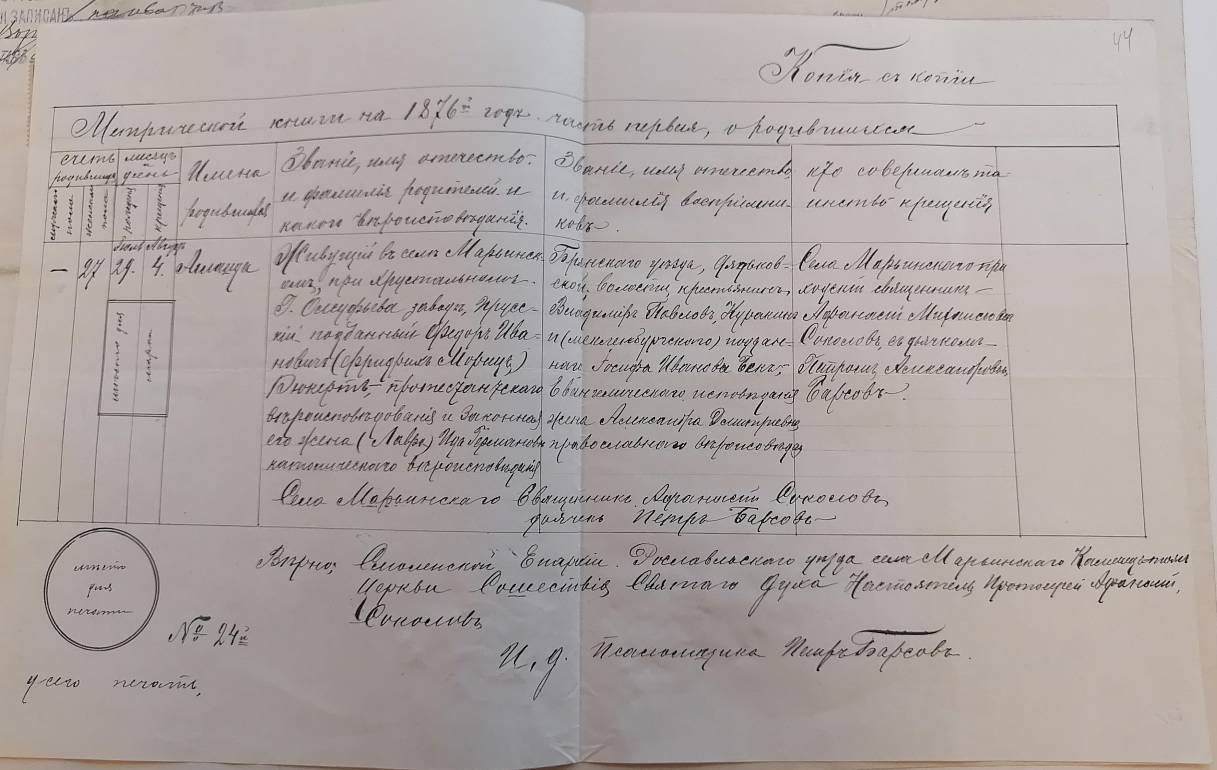 И ЗАПИСАЮ
44
Копія съ копіи
Метрической книги на 1876й годъ. часть первая, о родившихся
счетъ родившихся
мужеска пола
женска пола
мѣсяцъ день
рожденія
крещенія
Имена
родившихся
Званіе, имя отечество.
и фамилія родителей и
какого вѣроисповѣданія.
Званіе, имя отечество
и фамилія воспріемни-
ковъ.
кто совершалъ та-
инство крещенія
—
27
Іюль
29.
Августъ
4.
Живущій въ селѣ Марьинск-
омъ, при хрустальномъ.
Г. Олсуфьева заводѣ, Прусс-
кій подданный Федоръ Ива-
новичъ (Фридрихъ Морицъ)
протестантскаго
вѣроисповѣданія и законная
его жена Ида Германовна
католическаго вѣроисповѣданія
Брянскаго уѣзда, Дятьков-
ской, волости, крестьянинъ,
Владиміръ Павловъ, Куракинъ
и (мекленбургскаго) поддан-
наго Іосифа Иванова Бекъ,
Евангелическаго, исповѣданія
жена Александра Дмитріевна
православнаго вѣроисповѣда
Села Марьинскаго при
ходскій священникъ –
Афанасій Михаиловъ
Соколовъ, съ дьячкомъ
Петромъ, Александровымъ
Барсовъ.
мѣсто для
марки
Села Марьинскаго Священникъ Афанасій Соколовъ,
дьячекъ Петръ Барсовъ
мѣсто
для
печати
Вѣрно: Смоленской Епархіи. Рославльскаго уѣзда села Марьинскаго
Церкви Сошествія Святаго Духа Настоятель Протоіерей Афанасій,
Соколовъ
№ 24й
И, д. Псаломщика Петръ Барсовъ.
у сего печать,